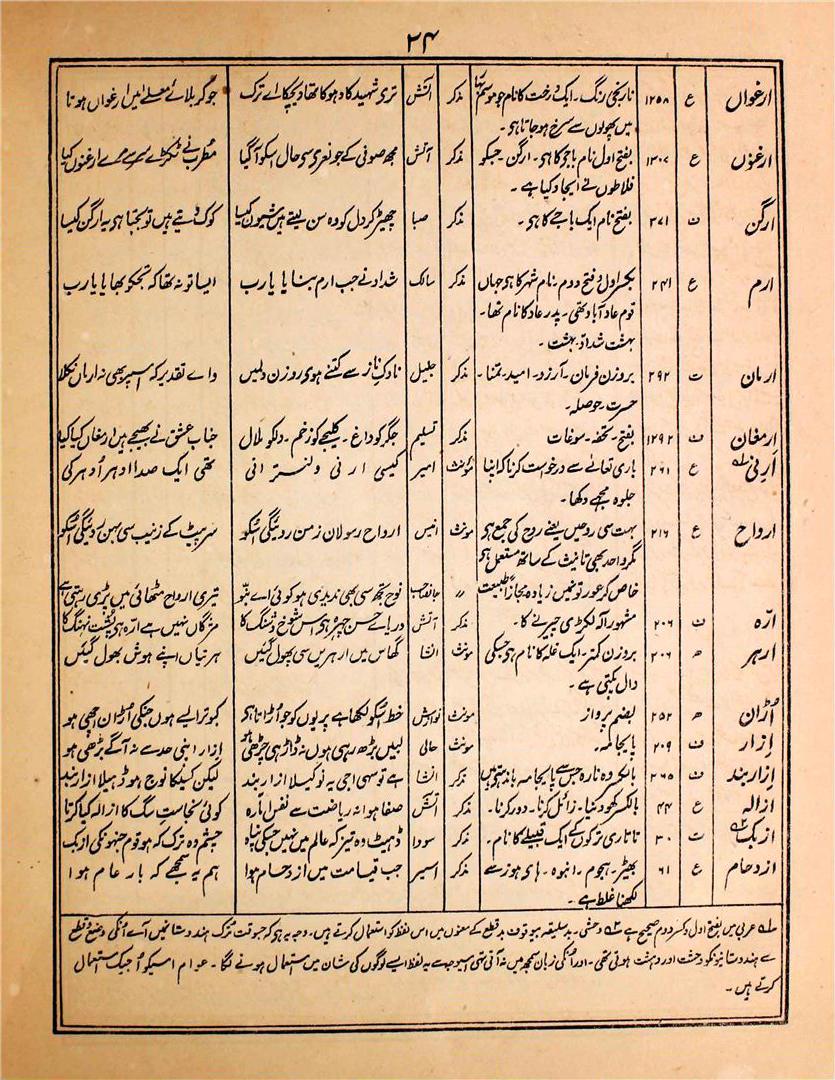 ۲۴
ارغواں ع ۱۲۵۸ نارنجی رنگ۔ ایک درخت کا نام جو موسم بہار مذکر آتش تری شہید کا دھوکا تھا دیکھا اے ترک جو کربلائے معلے میں ارغواں ہوتا
میں پھولوں سے سرخ ہو جاتا ہی۔
ارغنوں ع ۱۳۰۷ بفتح اول نام باجو کا ہی۔ ارگن۔ جسکو مذکر آتش مجھ صوفی کے جو نعرہ سی حال اسکو آگیا مطرب نے ٹکڑے سر سے مرے ارغنوں کیا
فلاطوں نے ایجاد کیا ہے۔
ارگن ف ۲۷۱ بفتح نام ایک باجے کا ہی۔ مذکر صبا چھیڑ کر دل کو وہ سن لیتے ہیں شیون کیسا کوک دیتے ہیں تو بجتا ہی یہ ارگن کیسا
ارم ع ۲۴۱ بکسر اول و فتح دوم۔ نام شہر کا ہی جہاں مذکر سالک شداد نے جب ارم بنایا یا رب ایسا تو نہ تھا کہ تجکو بھایا یا رب
قوم عاد آباد تھی۔ پدر عاد کا نام تھا۔
بہشت شداد۔ بہشت۔
ارمان ت ۲۹۲ بروزن فرمان۔ آرزو۔ امید۔ تمنا۔ مذکر جلیل ناوک ناز سے کتنے ہوی روزن دلمیں واے تقدیر کہ اسپر بھی نہ ارماں نکلا
حسرت۔ حوصلہ۔
ارمغان ف ۱۲۹۲ بفتح۔ تحفہ۔ سوغات مذکر تسلیم جگر کو داغ۔ کلیجے کو زخم۔ دلکو ملال جناب عشق نے بھیجے ہیں ارمغاں کیا کیا
اَرِنی؂۱ ع ۲۶۱ باری تعالے سے درخواست کرنا کہ اپنا مونث امیر کیسی ارنی ولنترانی تھی ایک صدا ادہر اُدہر کی
جلوہ مجھے دکھا۔
ارواح ع ۲۱۶ بہت سی روحیں یعنے روح کی جمع ہی مونث انیس ارواح رسولان زمن روئیگی اسکو سر پیٹ کے زینب سی بہن روئیگی اسکو
مگر واحد بھی تانیث کے ساتھ مستعمل ہی
خاص کر عورتونمیں زیادہ مجازاً طبیعت ״ جانصاحب نوج تجھ سی بھی ندیدی ہو کوئی اے بنّو تیری ارواح مٹھائی میں پڑی رہتی ہے
ارّہ ف ۲۰۶ مشہور آلہ لکڑی چیرنے کا۔ مذکر آتش دریاے حسن چہرہ ہی اس شوخ و شنگ کا مژگاں نہیں ہے ارّہ ہی پشت نہنگ کا
ارہر ھ ۴۰۶ بروزن کمتر۔ ایک غلہ کا نام ہی جسکی مونث انشا گھاس میں ارہریں سی پھول گئیں ہرنیاں اپنے ہوش بھول گئیں
دال پکتی ہے۔
اُڑان ھ ۲۵۲ بضم پرواز مونث نوازش خط اسکو لکھا ہے پریوں کو جو اڑاتا ہی کبوتر ایسے ہوں جنکی اُڑان اچھی ہو
اِزار ف ۲۰۹ پائجامہ۔ مونث حالی لبیں بڑھ رہی ہوں نہ ڈاڑھی چڑھی ہو اِزار اپنی حد سے نہ آگے بڑھی ہو
اِزاربند ف ۲۶۵ بالکسر وہ نارہ جس سے پائجامہ باندھتے ہیں مذکر انشا ہے تو سہی اجی یہ نوکیلا ازاربند لیکن کسیکا نوج ہو ڈھیلا ازاربند
ازالہ ع ۴۴ بالکسر کھو دینا۔ زائل کرنا۔ دور کرنا۔ مذکر آتش صفا ہوا نہ ریاضت سے نفس امارہ کوئی نجاستِ سگ کا ازالہ کیا کرتا
ازبک؂۲ ت ۳۰ تاتاری ترکوں کے ایک قبیلے کا نام۔ مذکر سودا ڈہیٹ وہ تیز کہ عالم میں نہیں جسکی پناہ چشم وہ ترک کہ ہو قوم جنہونکی ازبک
ازدحام ع ۶۱ بھیڑ۔ ہجوم۔ انبوہ۔ ہای ہوز سے مذکر اسیر جب قیامت میں ازدحام ہوا ہم یہ سمجھے کہ بار عام ہوا
لکھنا غلط ہے۔
؂۱ عربی میں بفتح اول و کسر دوم صحیح ہے ؂۲ وحشی۔ بدسلیقہ بیوقوف بدقطع کے معنوں میں اس لفظ کو استعمال کرتے ہیں۔ وجہ یہ ہی کہ جسوقت ترک ہندوستانمیں آے اُنکی وضع قطع
سے ہندوستانیونکو وحشت اور دہشت ہوتی تھی۔ اور اُنکی زبان سمجھ میں نہ آتی تھی اسیوجہسے یہ لفظ ایسے لوگوں کی شان میں استعمال ہونے لگا۔ عوام اسیکو اُجبک استعمال
کرتے ہیں۔